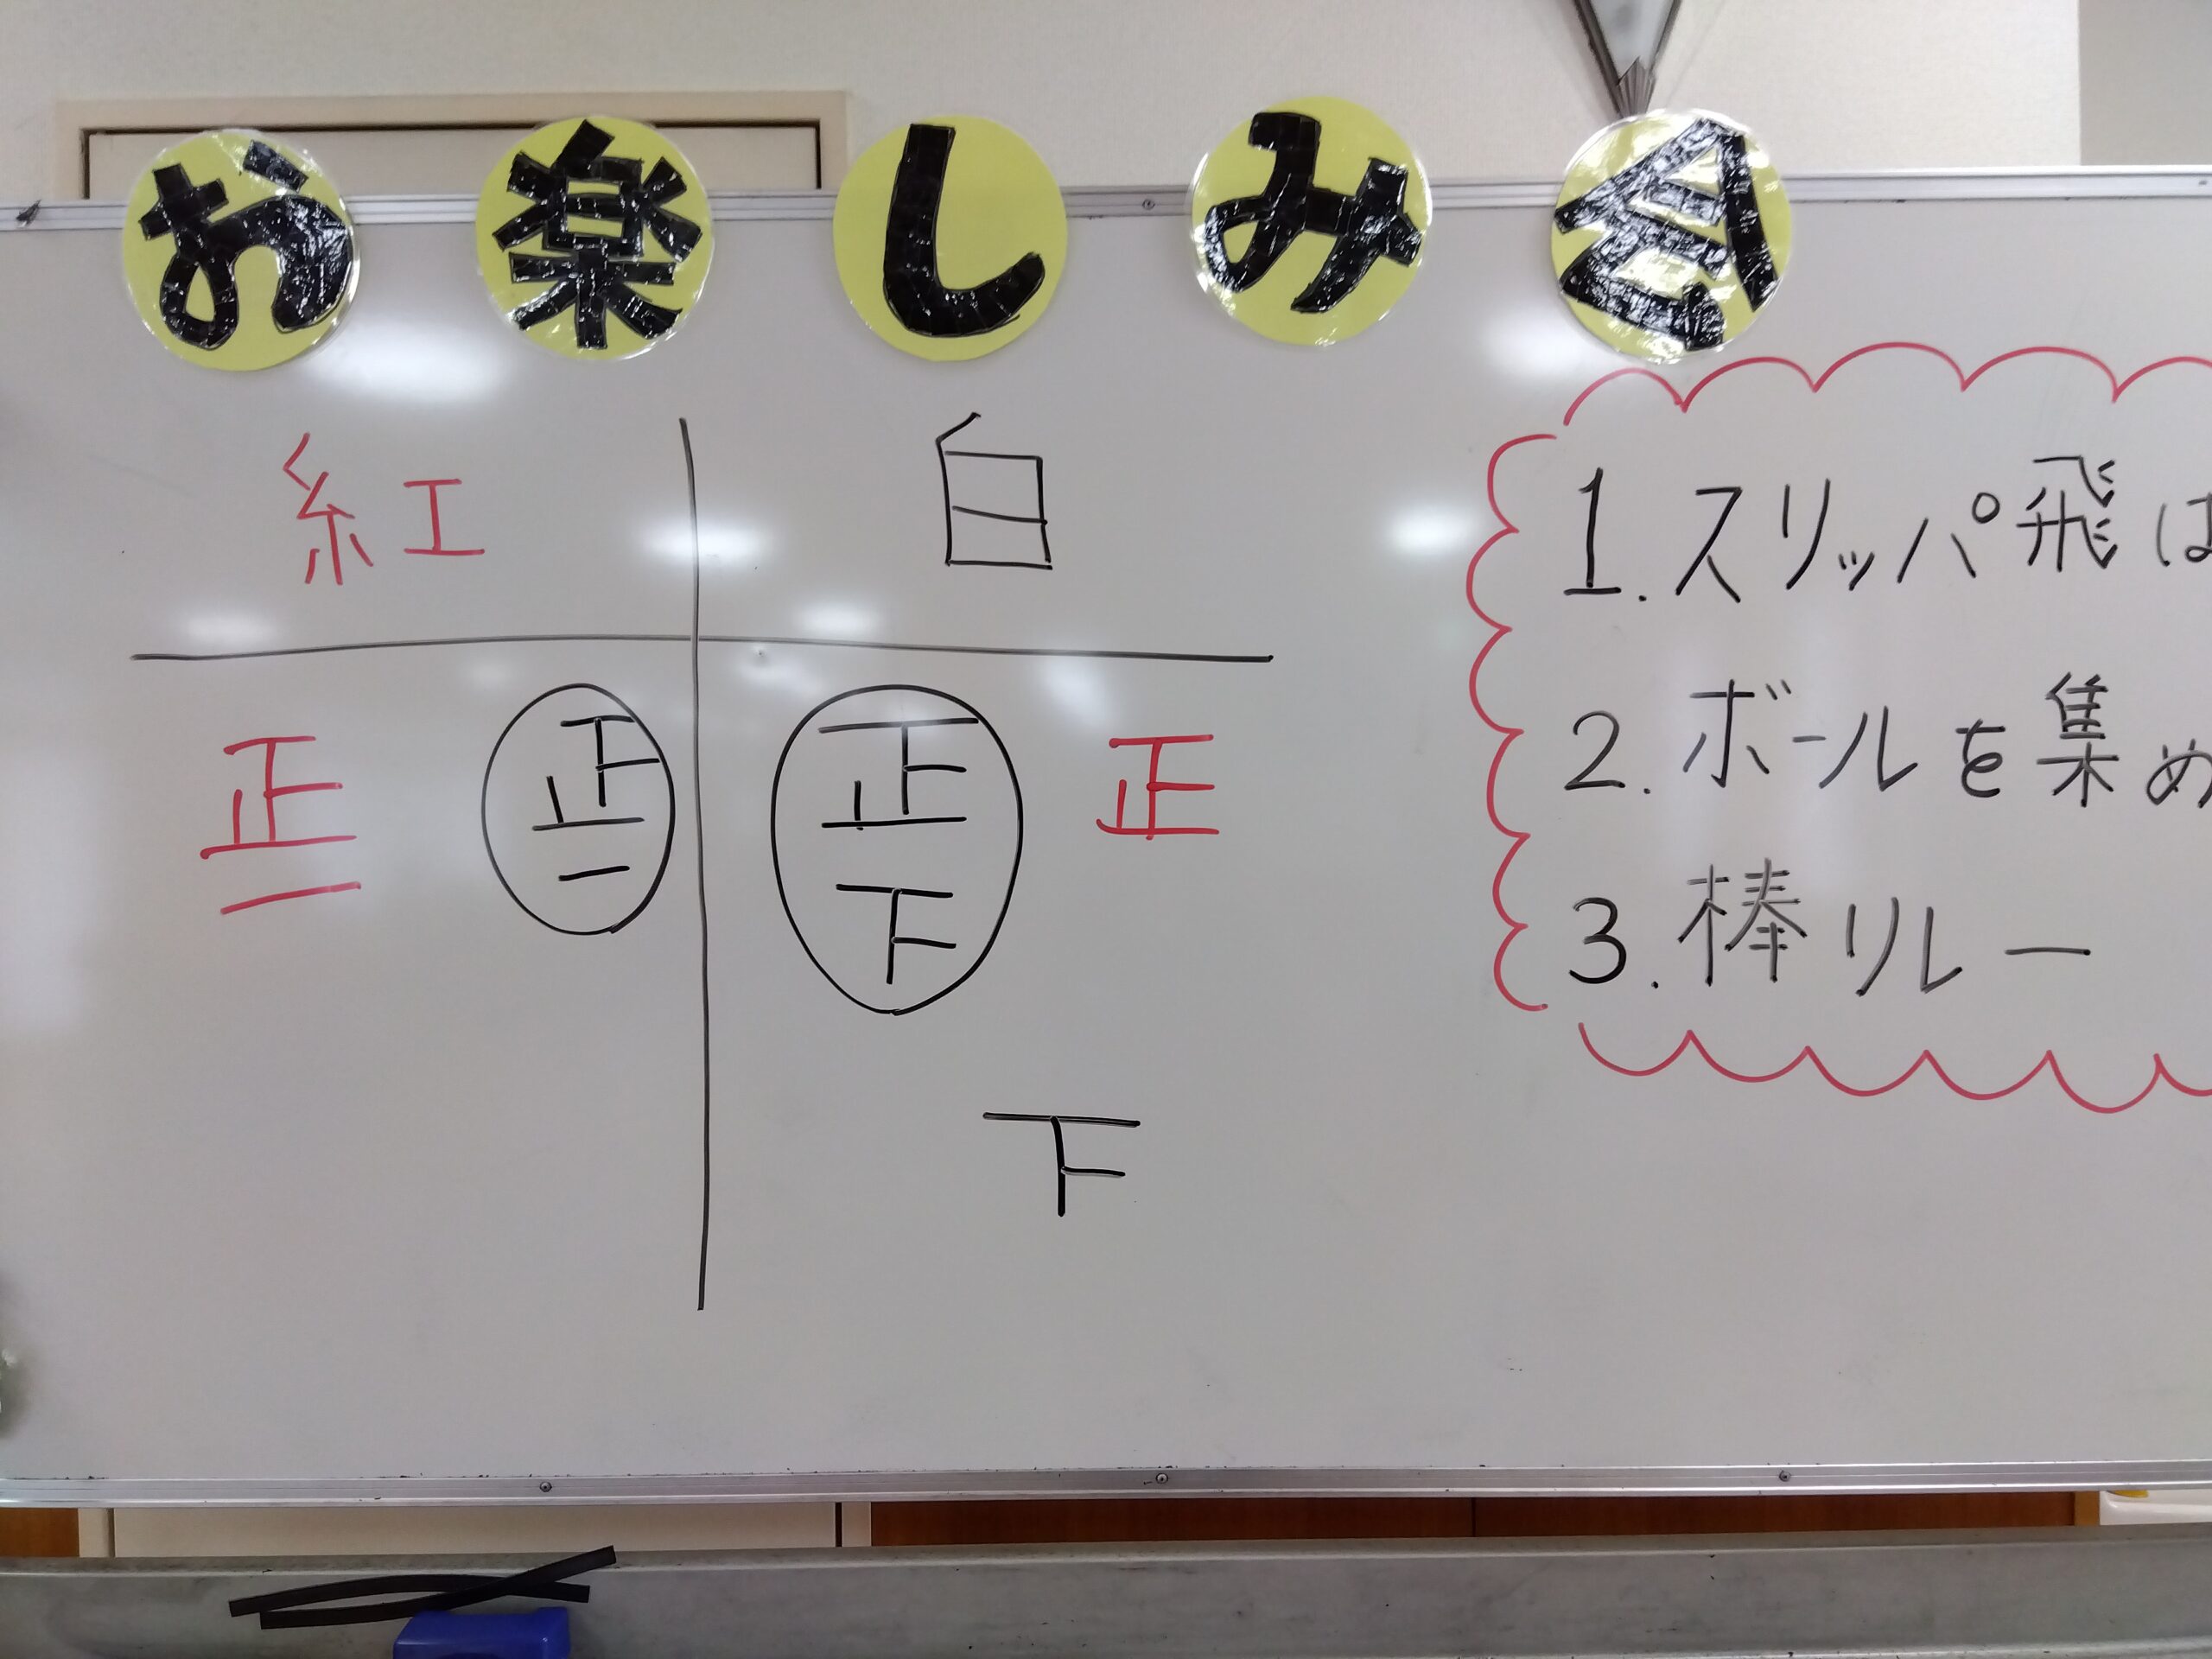 お楽しみ会
紅 白
正 正 正 正
一 一 下
下
1.スリッパ飛は
2.ボールを集め
3.棒リレー